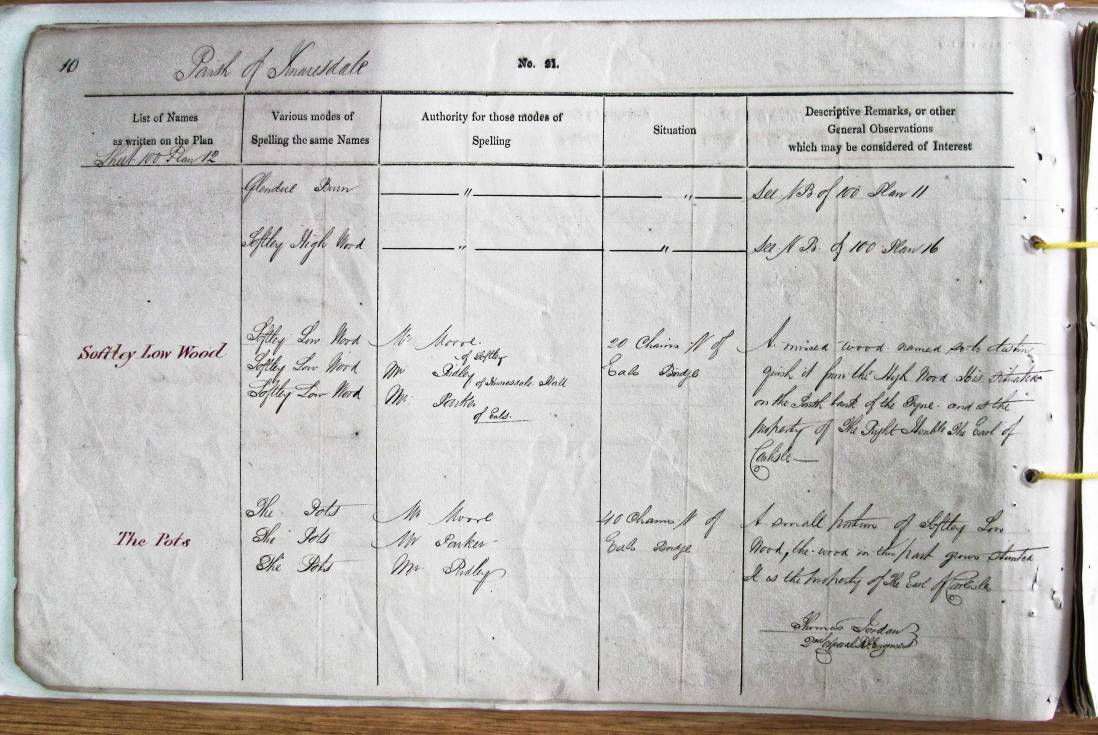 10
Parish of Knaresdale
No. 21.
List of Names
as written on the Plan
Sheet 100 Plan 12
Various modes of
Spelling the same Names
Authority for those modes of
Spelling
Situation
Descriptive Remarks, or other
General Observations
which may be considered of Interest
Glendue Burn
"
"
See N.B of 100 Plan 11
Softley High Wood
"
"
See N.B. of 100 Plan 16
Softley Low Wood
Softley Low Wood
Softley Low Wood
Softley Low Wood
Mr Moore
of Softley
Mr Ridley
of Knaresdale Hall
Mr Parker
of Eals
20 Chains N of
Eals Bridge
A mixed wood named so to distin
guish it from the High Wood It is situated
on the South bank of the Tyne and is the
property of The Right Honble The Earl of
Carlisle
The Pots
The Pots
The Pots
The Pots
Mr Moore
Mr Parker
Mr Ridley
40 Chains N of
Eals Bridge
A small portion of Softley Low
Wood, the wood in this part grows stunted
It is the property of The Earl of Carlisle
Thomas Jordan
2nd Corporal Rl Engineers